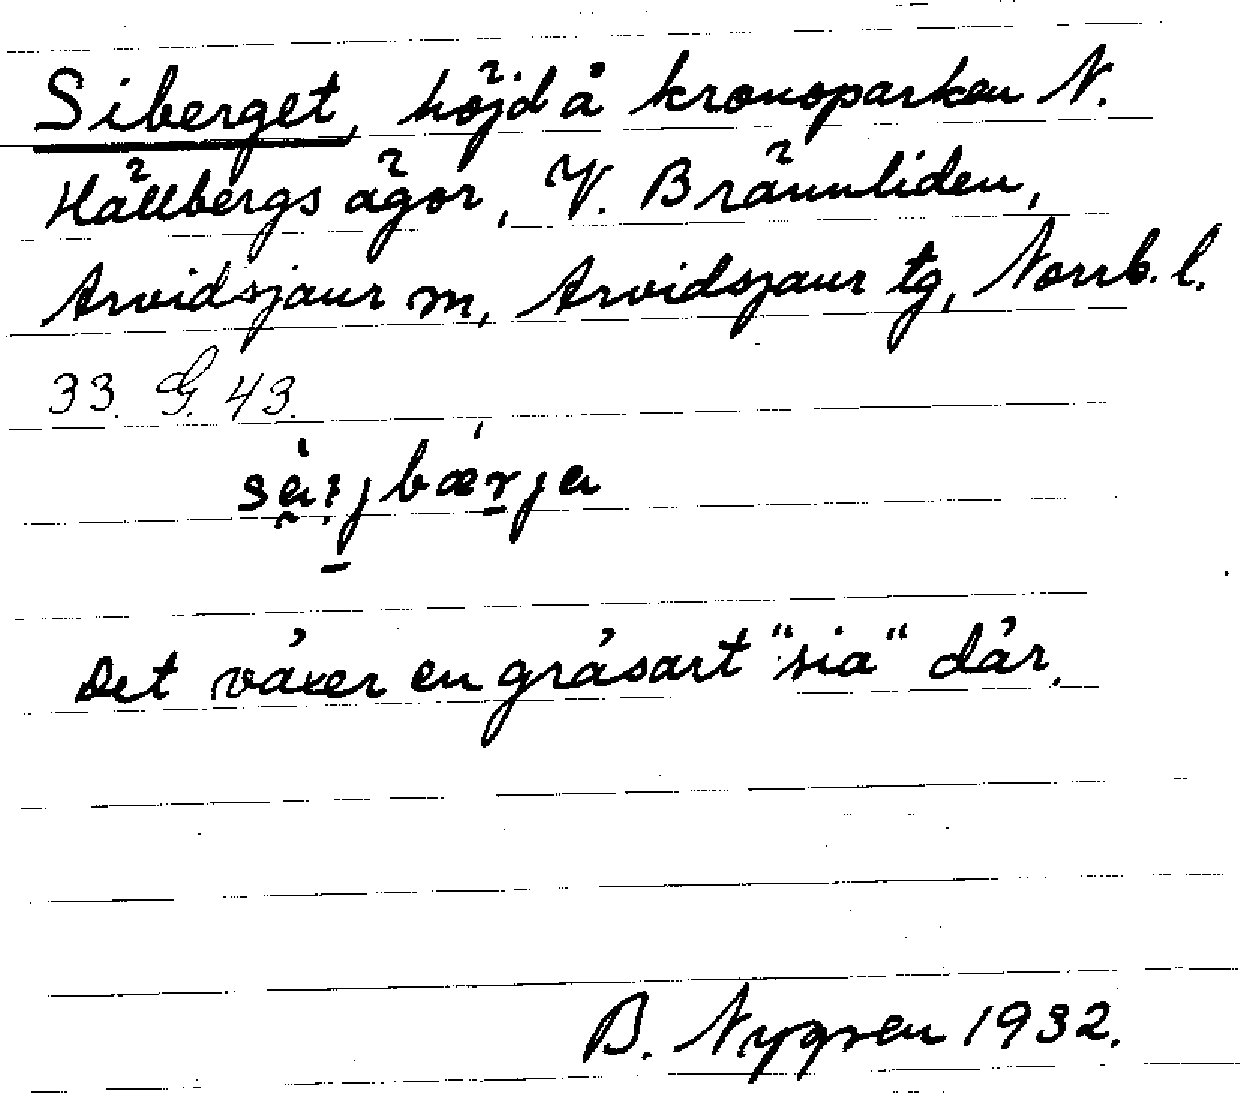 Siberget, höjd å kronoparken N.
Hällbergs ägor, V. Brännliden,
Arvidsjaur m, Arvidsjaur tg, Norrb. l.
33. G. 43.
Det växer en gräsart "sia" där.
B. Nygren 1932.